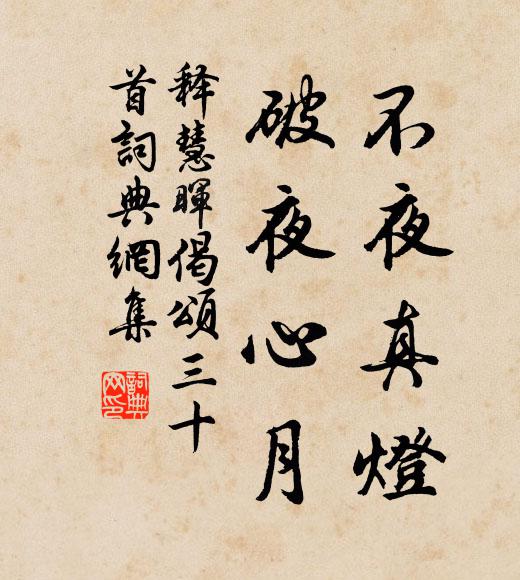 不夜真燈
破夜心月
釋慧暉偈頌三十
首詞典網集
詞典
网印